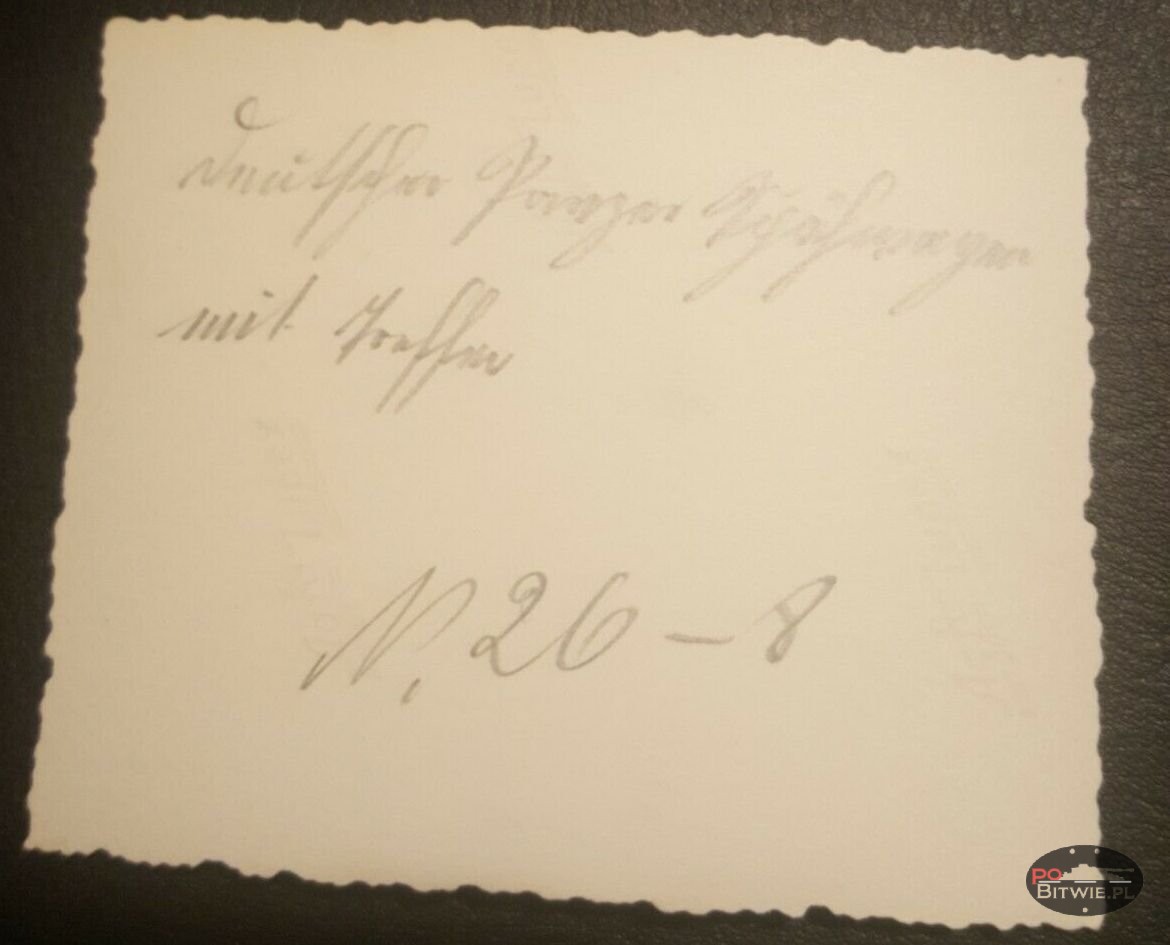 deutscher Panzer Spähwagen
mit Treffer
N. 26 – 8
PO
BITWIE.PL